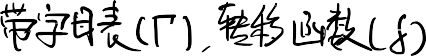 带字母表(Γ),转移函数(δ)